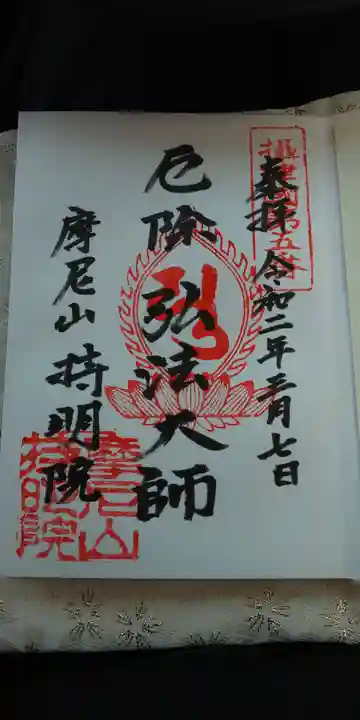 奉拝 令和二年三月七日
厄除 弘法大師
摩尼山 持明院
摩尼山
持明院